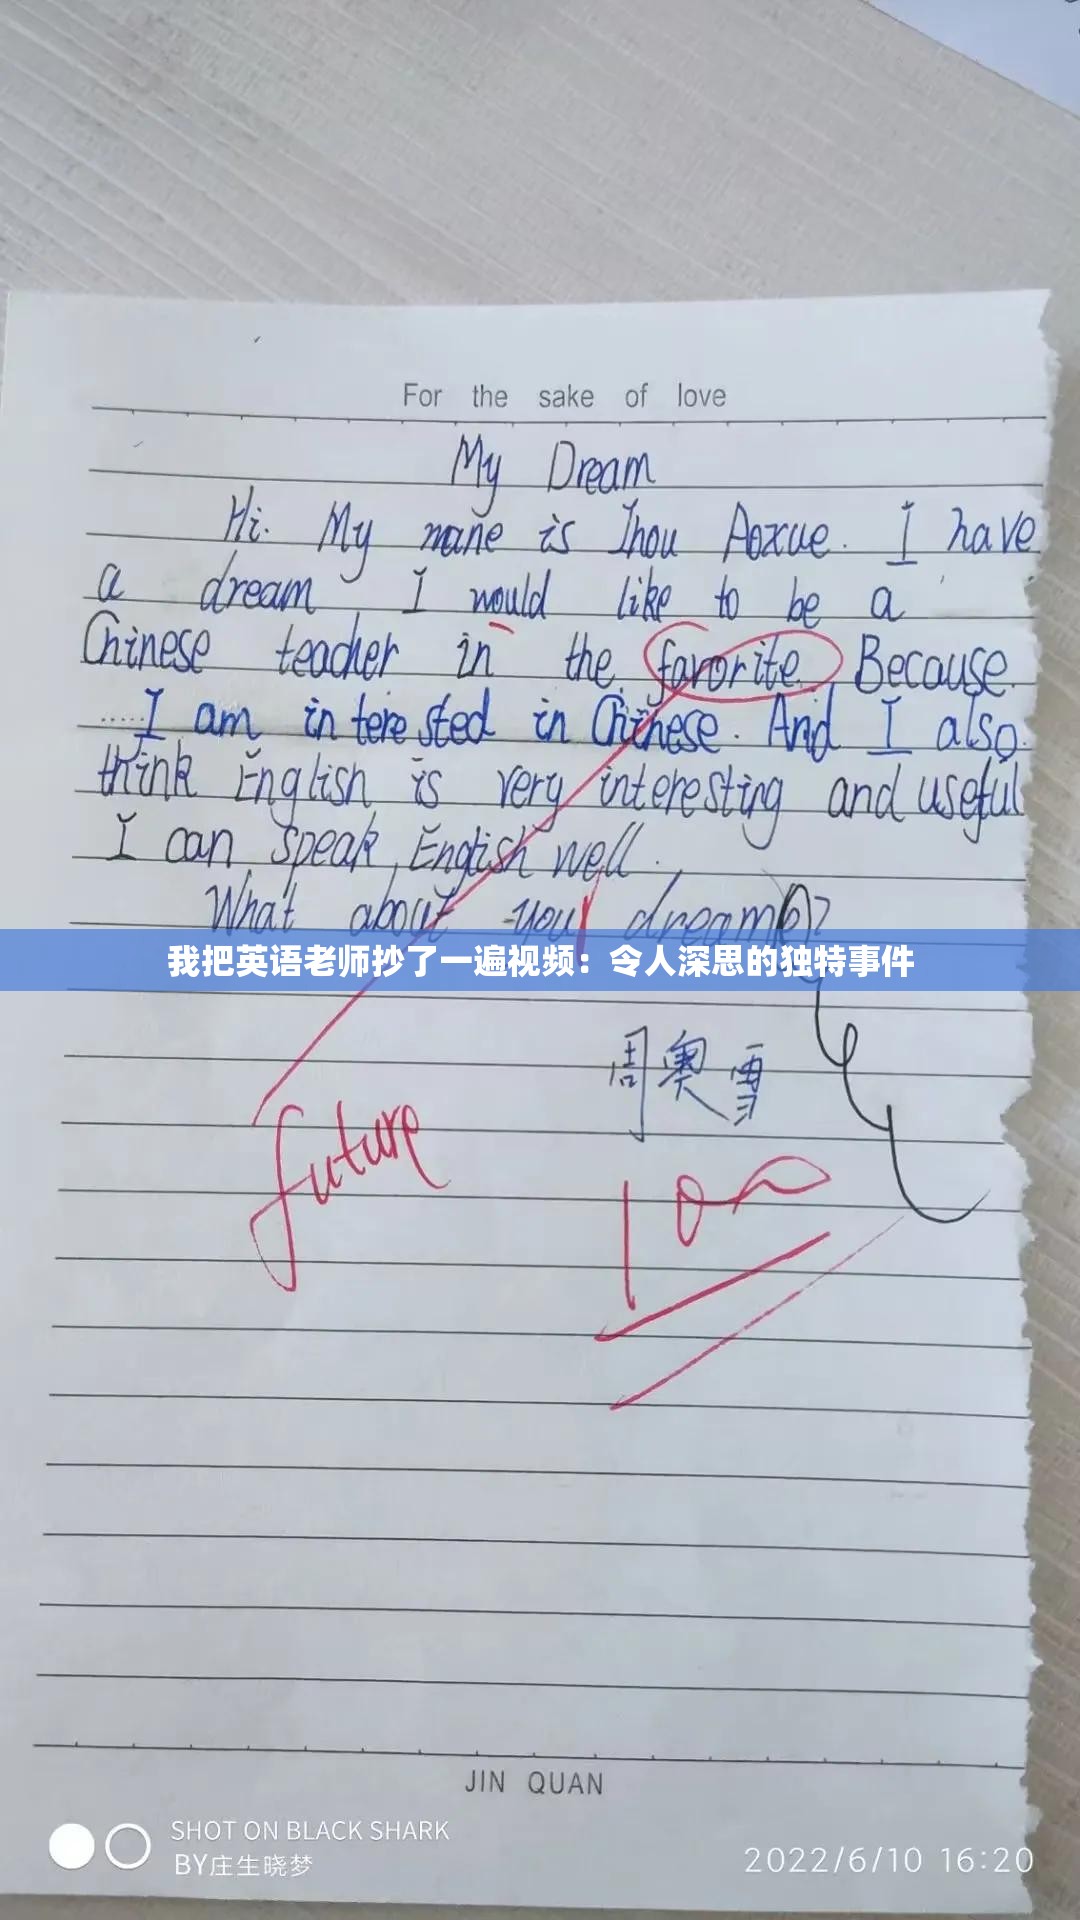 For the sake of love
My Dream
Hi. My name is Zhou Aoxue. I have
a dream I would like to be a
Chinese teacher in the favorite. Because
I am interested in Chinese. And I also
think English is very interesting and useful
I can speak English well.
What about your dream?
我把英语老师抄了一遍视频：令人深思的独特事件
周奥雪
future
100
JIN QUAN
SHOT ON BLACK SHARK
BY庄生晓梦
2022/6/10 16:20